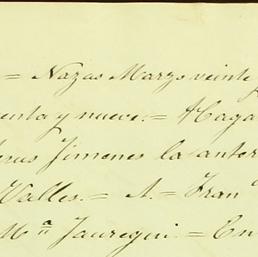 = Nazas Marzo veinte y
enta y nueve. = Haga
Jimenes la anter
Valles. = A. = Fran
Mª Jauregui. = En